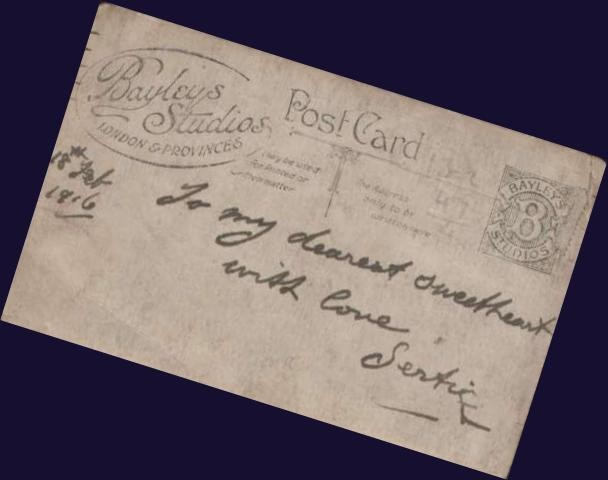 Bayleys
Studios
LONDON & PROVINCES
Post Card
may be used
For printed or
written matter
The Address
only to be
written here
BAYLEY'S
8
STUDIOS
18th Feb
1916
To my dearest sweetheart
with love